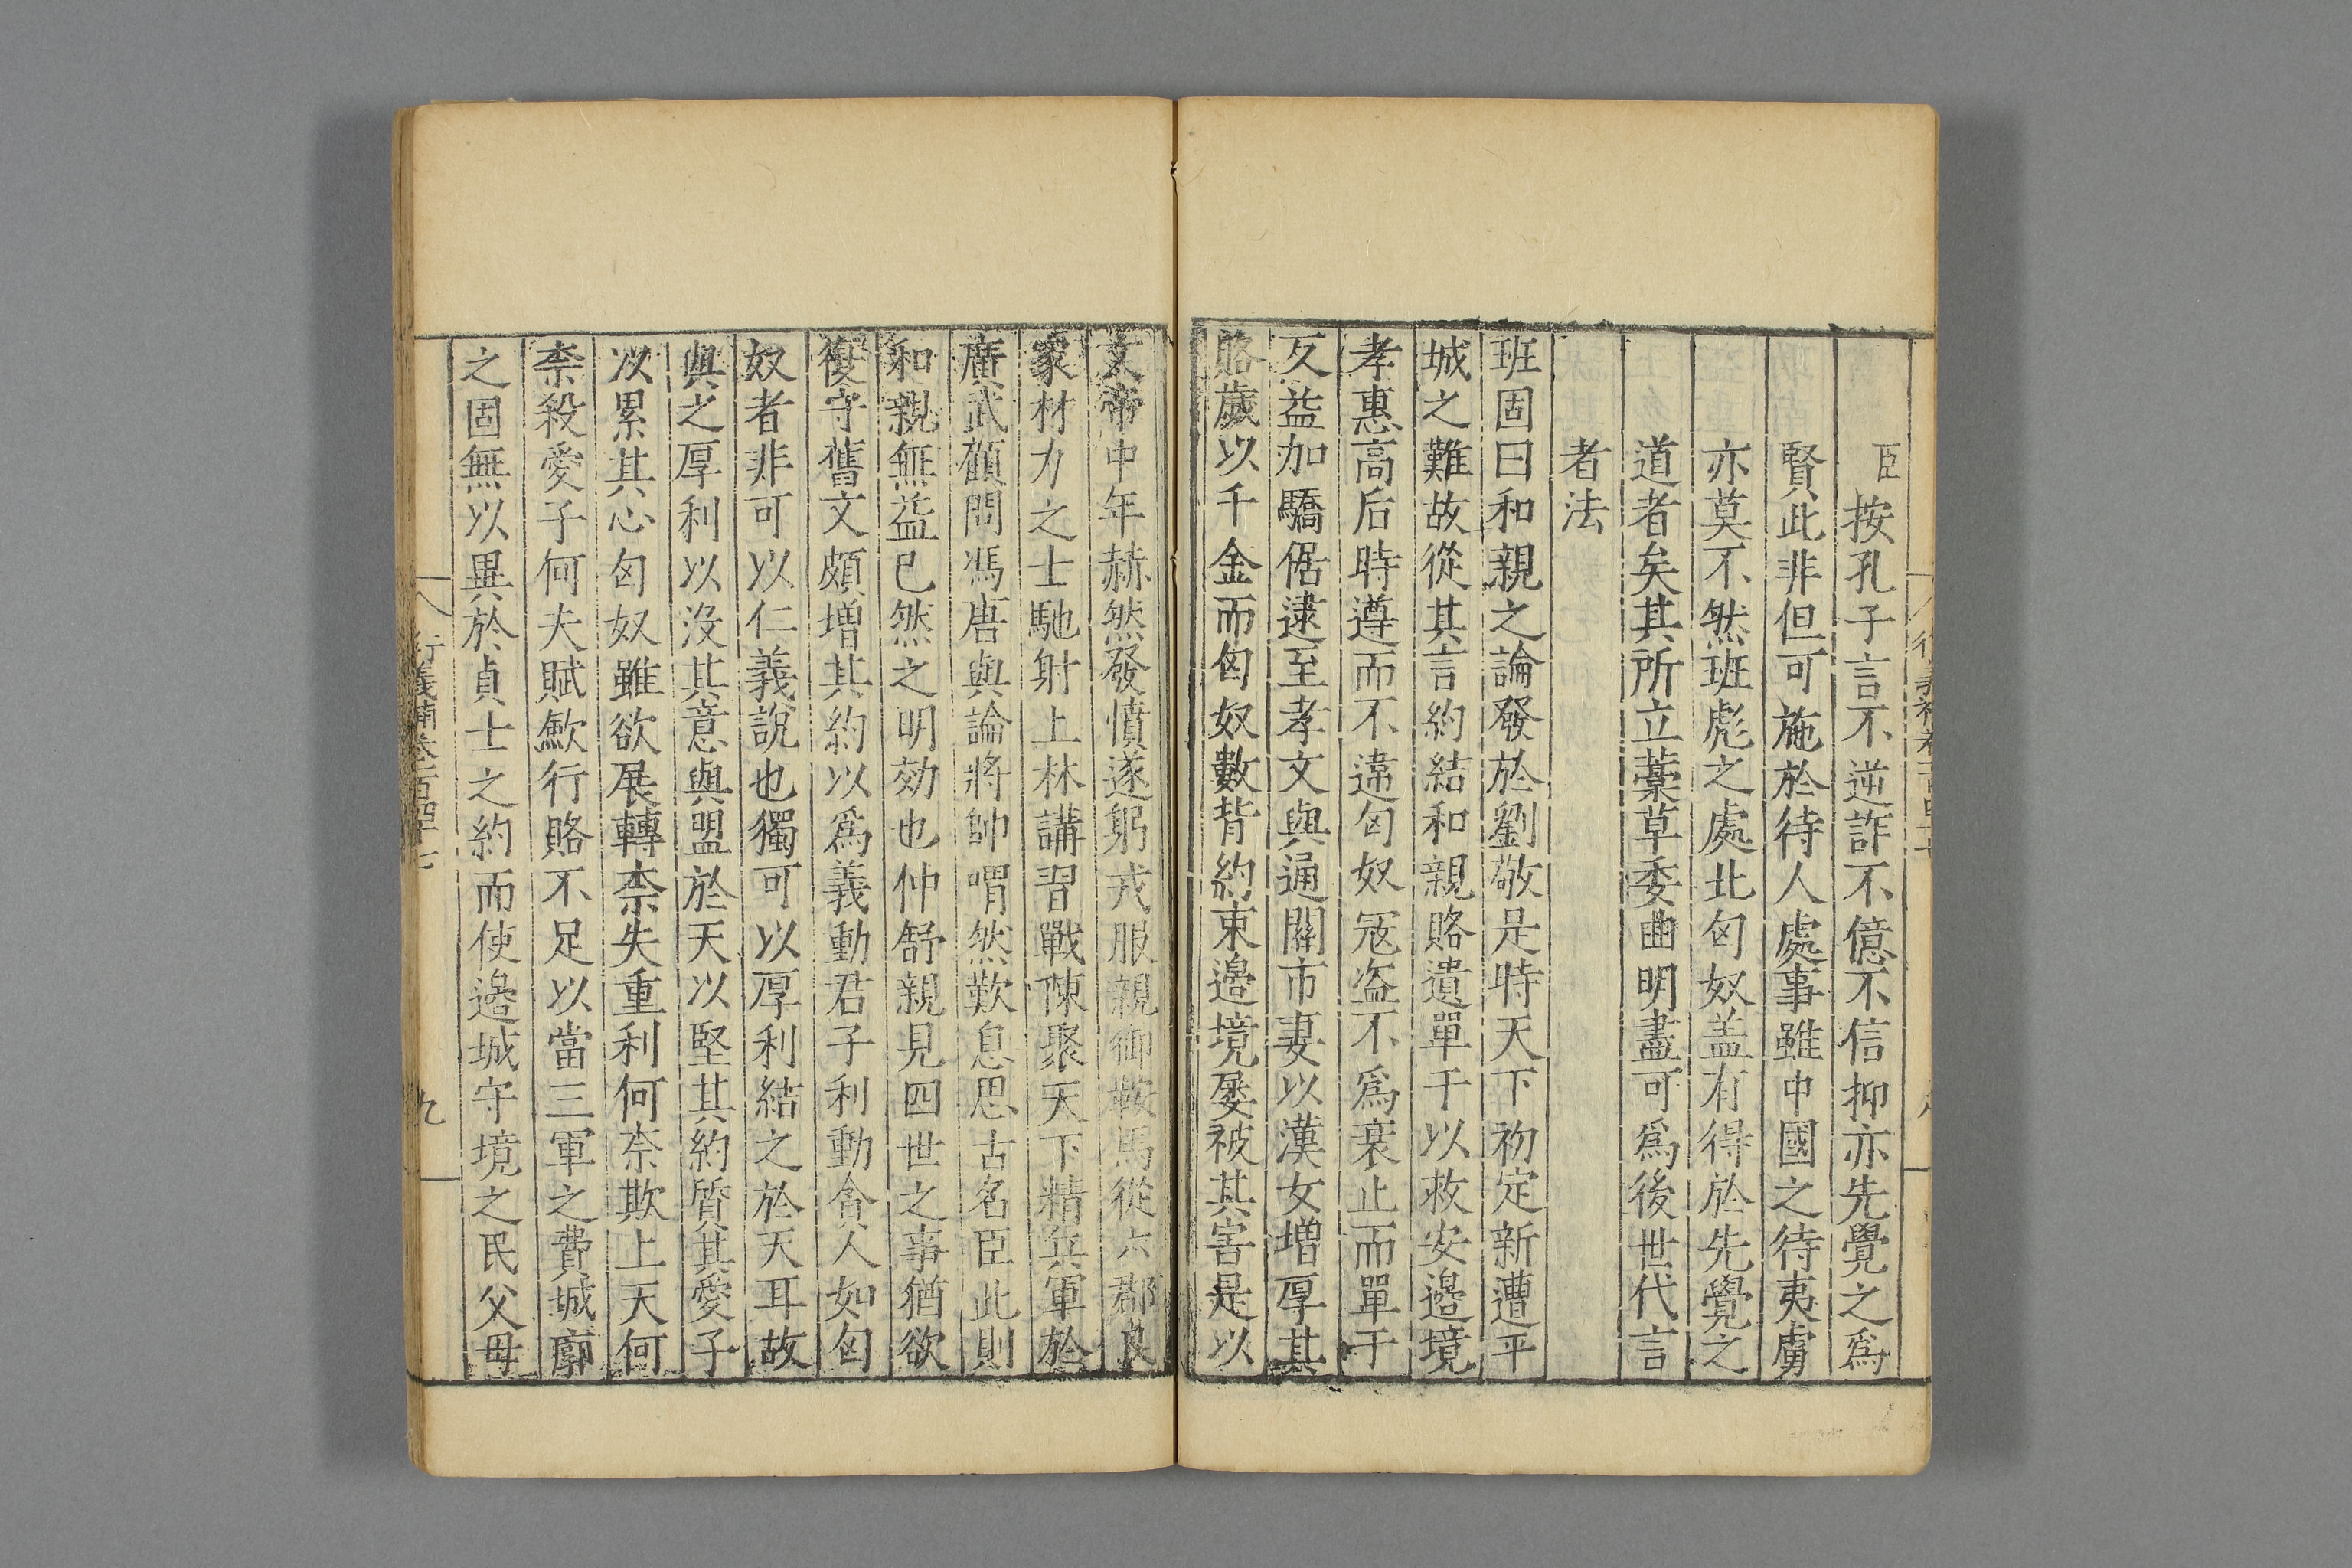 臣按孔子言不逆詐不億不信抑亦先覺之爲
賢此非但可施於待人處事雖中國之待夷虜
亦莫不然班彪之處北匈奴盖有得於先覺之
道者矣其所立藁草委曲明盡可爲後世代言
者法
班固曰和親之論發於劉敬是時天下初定新遭平
城之難故從其言約結和親賂遺單于以救安邊境
孝惠高后時遵而不違匈奴冦盗不爲衰止而單于
反益加驕倨逮至孝文與通關市妻以漢女增厚其
賂歲以千金而匈奴數背約束邊境屡被其害是以
文帝中年赫然發憤遂躬戎服親御鞍馬從六郡良
家材力之士馳射上林講習戰陳聚天下精兵軍於
廣武顧問馮唐與論將帥喟然歎息思古名臣此則
和親無益已然之明効也仲舒親見四世之事猶欲
復守舊文頗增其約以爲義動君子利動貪人如匈
奴者非可以仁義說也獨可以厚利結之於天耳故
與之厚利以没其意與盟於天以堅其約質其愛子
以累其心匈奴雖欲展轉柰失重利何柰欺上天何
柰殺愛子何夫賦歛行賂不足以當三軍之費城廓
之固無以異於貞士之約而使邊城守境之民父母
衍義補卷一百四十七
九